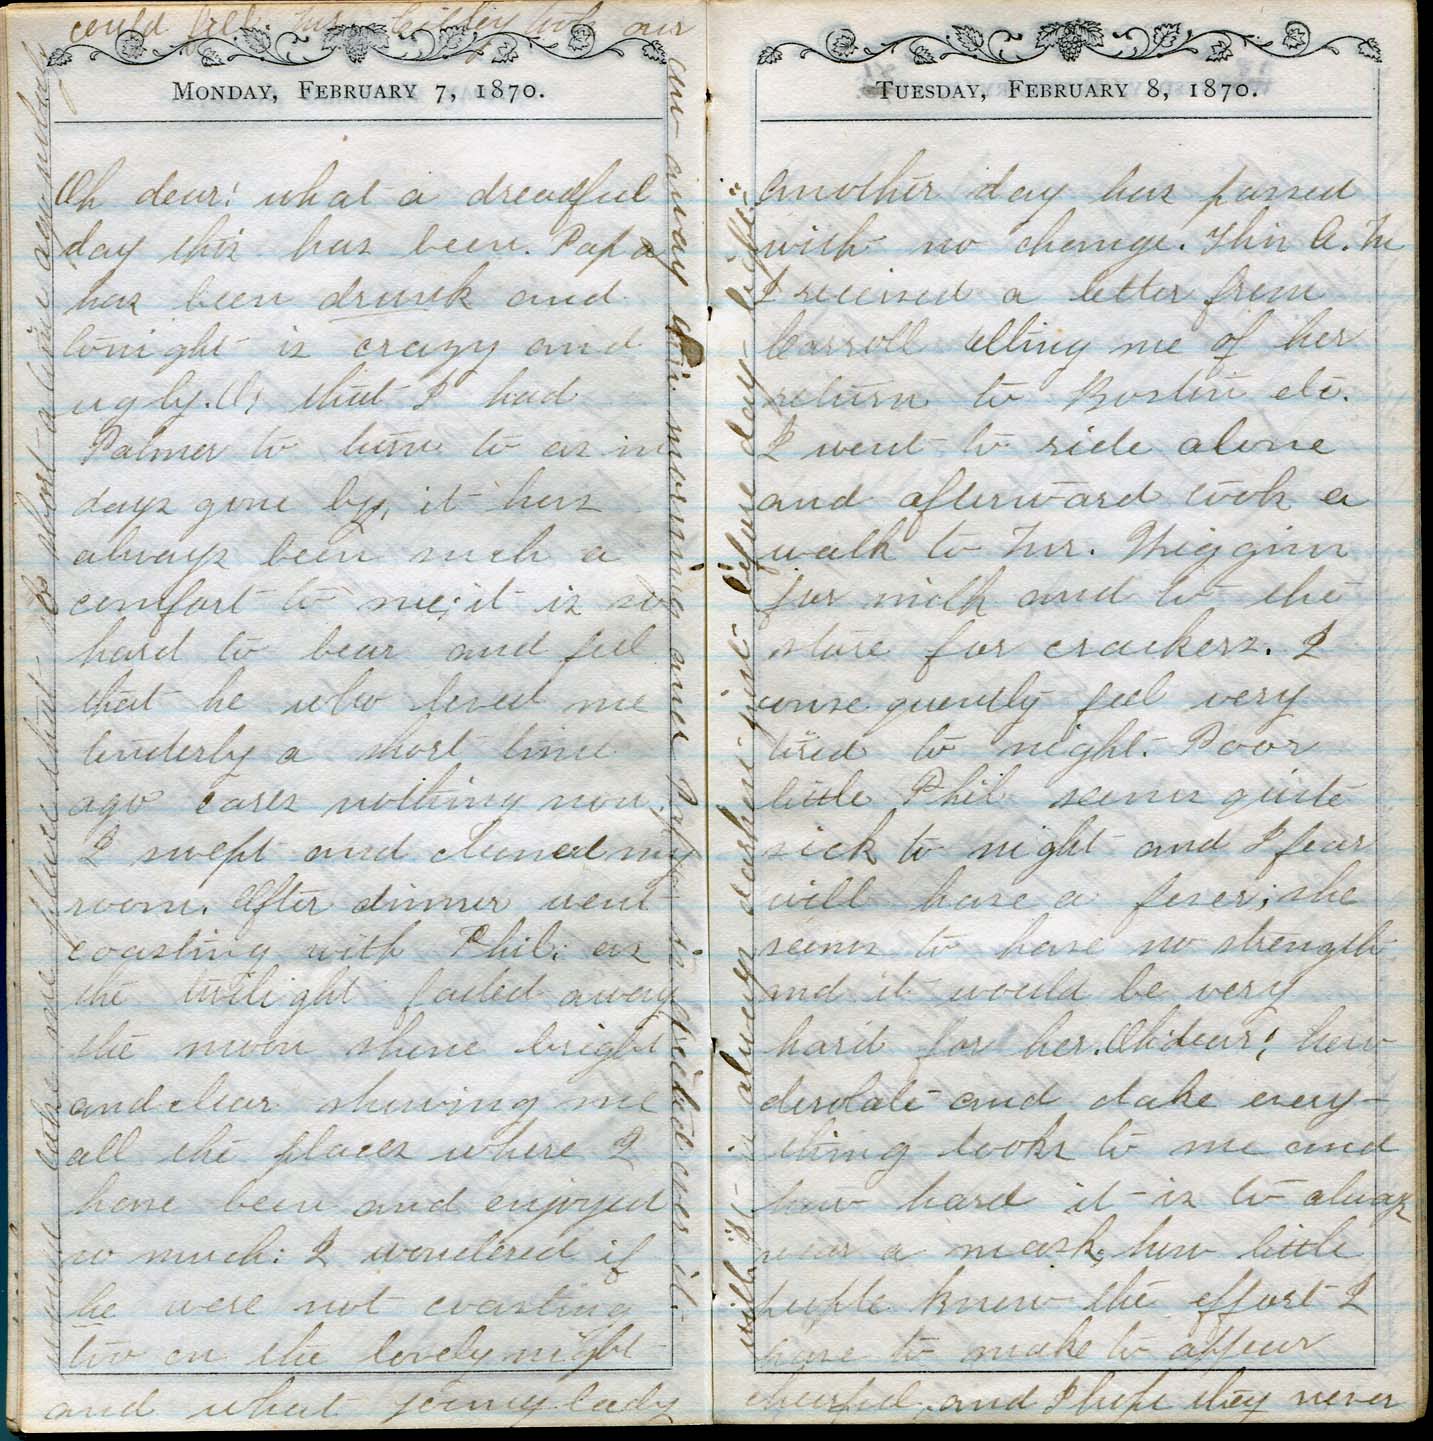 MONDAY, FEBRUARY 7, 1870.
Oh dear! what a dreadful
day this has been. Papa
has been drunk and
tonight is crazy and
ugly. O, that I had
Palmer to turn to as in
days gone by, it has
always been such a
comfort to me; it is so
hard to bear and feel
that he who loved me
tenderly a short time
ago cares nothing now.
I swept and cleaned my
room. After dinner went
coasting with Phil; as
the twilight faded away
the moon shone bright
and clear showing me
all the places where I
have been and enjoyed
so much: I wondered if
he were not coasting
too on this lovely night
and what young lady
would take me place that so short a time ago made
could feel. Mrs. took our
cow away this morning and Papa is tried over it.
TUESDAY, FEBRUARY 8, 1870.
Another day has passed
with no change. This A.M
I received a letter from
Carroll telling me of her
return to Boston etc.
I went to ride alone
and afterward took a
walk to Mr. Higgins
for milk and to the
store for crackers. I
consequently feel very
tired to night. Poor
little Phil seems quite
sick to night and I fear
will have a fever; she
seems to have no strength
and it would be very
hard for her. Oh dear! how
desolate and dake every-
thing looks to me and
how hard it is to always
wear a mask, how little
people know the effort I
have to make to appear
cheerful, and I hope they never
will. "It is always darkest just before day-light"